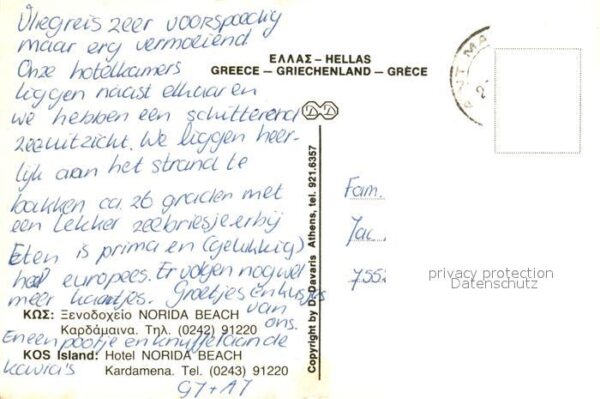 Vliegreis zeer voorspoedig
maar erg vermoeiend.
Onze hotelkamers
liggen naast elkaar en
we hebben een schitterend
zeeuitzicht. We liggen heer-
lijk aan het strand te
bakken ca. 26 graden met
een lekker zeebriesje erbij
Eten is prima en (gelukkig)
heel europees. Er volgen nog wel
meer kaartjes. Groetjes en kusjes
van
ons.
En een pootje en knuffel aan de
ΚΩΣ: Ξενοδοχείο NORIDA BEACH
Καρδάμαινα. Τηλ. (0242) 91220
KOS Island: Hotel NORIDA BEACH
Kardamena. Tel. (0243) 91220
ΕΛΛΑΣ – HELLAS
GREECE – GRIECHENLAND – GRÈCE
Copyright by D. Davaris Athens, tel. 921.6357
Fam.
755
privacy protection
Datenschutz